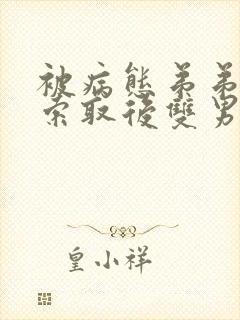 被病態弟弟
索取後雙男
皇小祥